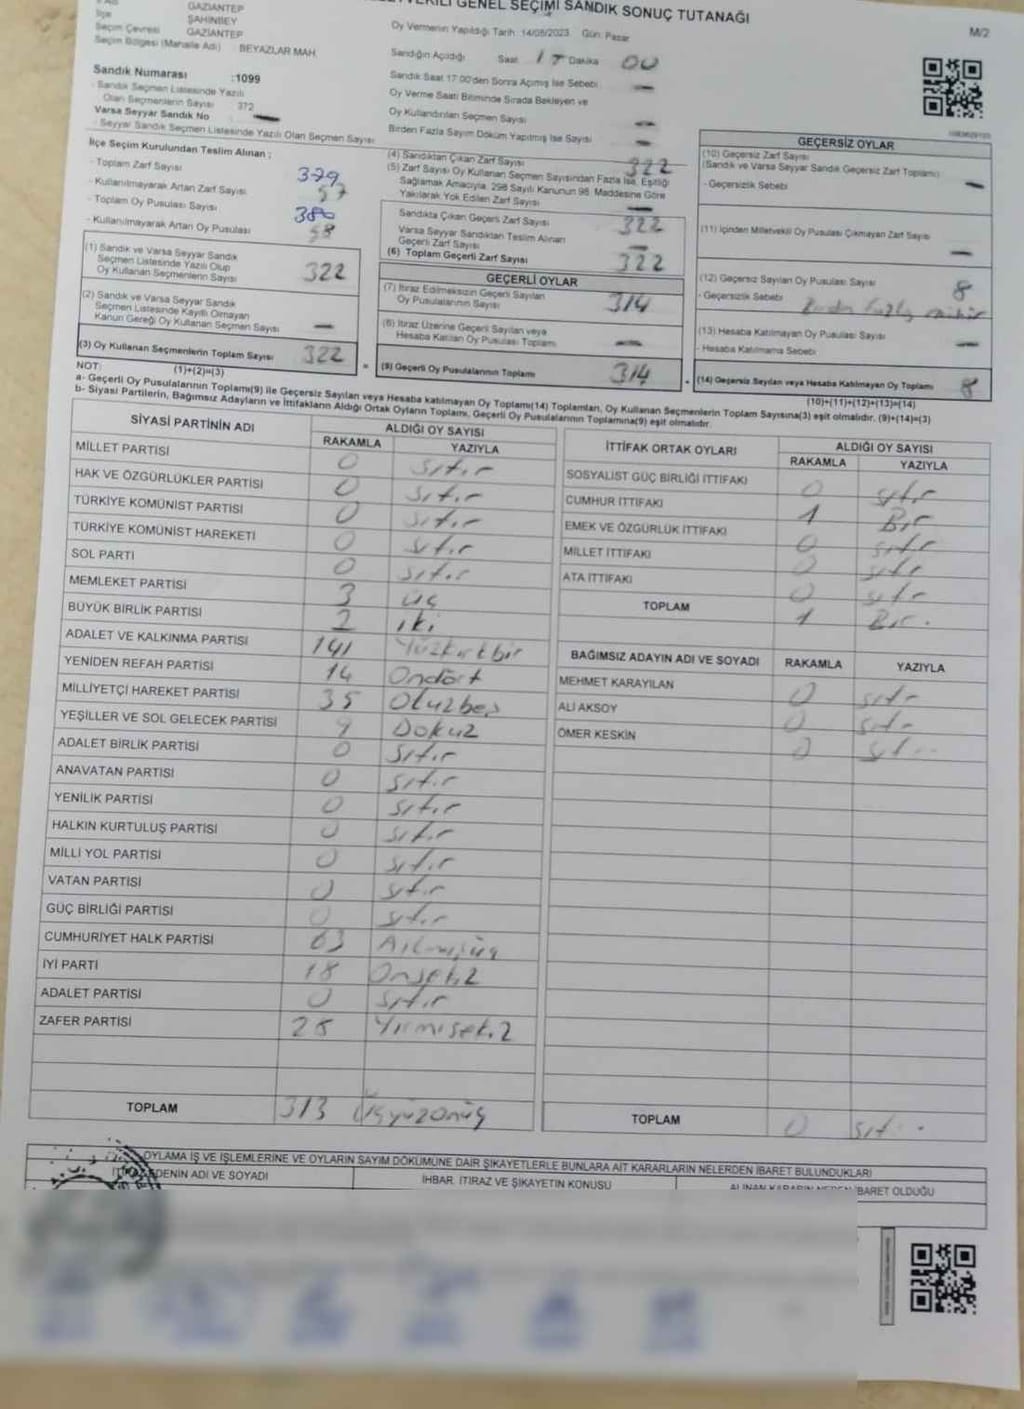 GENEL SEÇİMİ SANDIK SONUÇ TUTANAĞI
M/2
İlçe
GAZİANTEP
ŞAHİNBEY
Seçim Çevresi GAZİANTEP
Seçim Bölgesi (Mahalle Adı) BEYAZLAR MAH.
Oy Vermenin Yapıldığı Tarih: 14/05/2023 Gün: Pazar
Sandığın Açıldığı Saat 17 Dakika 00
Sandık Saat 17:00'den Sonra Açılmış İse Sebebi —
Oy Verme Saati Bitiminde Sırada Bekleyen ve
Oy Kullandırılan Seçmen Sayısı —
Birden Fazla Sayım Döküm Yapılmış İse Sayısı —
Sandık Numarası :1099
- Sandık Seçmen Listesinde Yazılı
Olan Seçmenlerin Sayısı 372
Varsa Seyyar Sandık No —
- Seyyar Sandık Seçmen Listesinde Yazılı Olan Seçmen Sayısı
İlçe Seçim Kurulundan Teslim Alınan ;
- Toplam Zarf Sayısı 379
- Kullanılmayarak Artan Zarf Sayısı 57
- Toplam Oy Pusulası Sayısı 380
- Kullanılmayarak Artan Oy Pusulası 58
(1) Sandık ve Varsa Seyyar Sandık
Seçmen Listesinde Yazılı Olup
Oy Kullanan Seçmenlerin Sayısı 322
(2) Sandık ve Varsa Seyyar Sandık
Seçmen Listesinde Kayıtlı Olmayan
Kanun Gereği Oy Kullanan Seçmen Sayısı —
(3) Oy Kullanan Seçmenlerin Toplam Sayısı 322
(1)+(2)=(3)
(4) Sandıktan Çıkan Zarf Sayısı 322
(5) Zarf Sayısı Oy Kullanan Seçmen Sayısından Fazla İse, Eşitliği
Sağlamak Amacıyla, 298 Sayılı Kanunun 98. Maddesine Göre
Yakılarak Yok Edilen Zarf Sayısı —
Sandıkta Çıkan Geçerli Zarf Sayısı 322
Varsa Seyyar Sandıktan Teslim Alınan
Geçerli Zarf Sayısı —
(6) Toplam Geçerli Zarf Sayısı 322
GEÇERLİ OYLAR
(7) İtiraz Edilmeksizin Geçerli Sayılan
Oy Pusulalarının Sayısı 314
(8) İtiraz Üzerine Geçerli Sayılan veya
Hesaba Katılan Oy Pusulası Toplamı —
= (9) Geçerli Oy Pusulalarının Toplamı 314
GEÇERSİZ OYLAR
(10) Geçersiz Zarf Sayısı
(Sandık ve Varsa Seyyar Sandık Geçersiz Zarf Toplamı) —
- Geçersizlik Sebebi
(11) İçinden Milletvekili Oy Pusulası Çıkmayan Zarf Sayısı —
(12) Geçersiz Sayılan Oy Pusulası Sayısı 8
- Geçersizlik Sebebi Birden fazla mühür
(13) Hesaba Katılmayan Oy Pusulası Sayısı —
- Hesaba Katılmama Sebebi
(14) Geçersiz Sayılan veya Hesaba Katılmayan Oy Toplamı 8
(10)+(11)+(12)+(13)=(14)
NOT:
a- Geçerli Oy Pusulalarının Toplamı(9) ile Geçersiz Sayılan veya Hesaba katılmayan Oy Toplamı(14) Toplamları, Oy Kullanan Seçmenlerin Toplam Sayısına(3) eşit olmalıdır. (9)+(14)=(3)
b- Siyasi Partilerin, Bağımsız Adayların ve İttifakların Aldığı Ortak Oyların Toplamı, Geçerli Oy Pusulalarının Toplamına(9) eşit olmalıdır.
SİYASİ PARTİNİN ADI ALDIĞI OY SAYISI
RAKAMLA YAZIYLA
MİLLET PARTİSİ 0 sıfır
HAK VE ÖZGÜRLÜKLER PARTİSİ 0 sıfır
TÜRKİYE KOMÜNİST PARTİSİ 0 sıfır
TÜRKİYE KOMÜNİST HAREKETİ 0 sıfır
SOL PARTİ 0 sıfır
MEMLEKET PARTİSİ 3 üç
BÜYÜK BİRLİK PARTİSİ 2 iki
ADALET VE KALKINMA PARTİSİ 141 Yüzkırkbir
YENİDEN REFAH PARTİSİ 14 Ondört
MİLLİYETÇİ HAREKET PARTİSİ 35 Otuzbeş
YEŞİLLER VE SOL GELECEK PARTİSİ 9 Dokuz
ADALET BİRLİK PARTİSİ 0 sıfır
ANAVATAN PARTİSİ 0 sıfır
YENİLİK PARTİSİ 0 sıfır
HALKIN KURTULUŞ PARTİSİ 0 sıfır
MİLLİ YOL PARTİSİ 0 sıfır
VATAN PARTİSİ 0 sıfır
GÜÇ BİRLİĞİ PARTİSİ 0 sıfır
CUMHURİYET HALK PARTİSİ 63 Altmışüç
İYİ PARTİ 18 Onsekiz
ADALET PARTİSİ 0 sıfır
ZAFER PARTİSİ 28 Yirmisekiz
TOPLAM 313 Üçyüzonüç
İTTİFAK ORTAK OYLARI ALDIĞI OY SAYISI
RAKAMLA YAZIYLA
SOSYALİST GÜÇ BİRLİĞİ İTTİFAKI 0 sıfır
CUMHUR İTTİFAKI 1 Bir
EMEK VE ÖZGÜRLÜK İTTİFAKI 0 sıfır
MİLLET İTTİFAKI 0 sıfır
ATA İTTİFAKI 0 sıfır
TOPLAM 1 Bir.
BAĞIMSIZ ADAYIN ADI VE SOYADI RAKAMLA YAZIYLA
MEHMET KARAYILAN 0 sıfır
ALİ AKSOY 0 sıfır
ÖMER KESKİN 0 sıfır
TOPLAM 0 sıfır
OYLAMA İŞ VE İŞLEMLERİNE VE OYLARIN SAYIM DÖKÜMÜNE DAİR ŞİKAYETLERLE BUNLARA AİT KARARLARIN NELERDEN İBARET BULUNDUKLARI
EDENİN ADI VE SOYADI
İHBAR, İTİRAZ VE ŞİKAYETİN KONUSU
ALINAN KARARIN NEDEN İBARET OLDUĞU